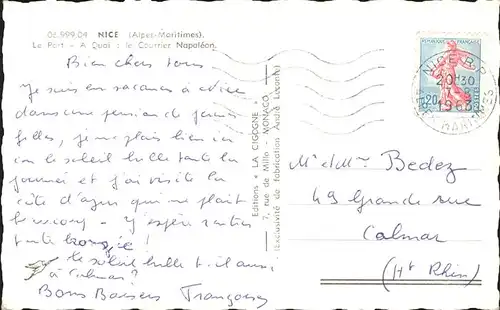 06.999.09 NICE (Alpes-Maritimes).
Le Port - A Quai : le Courrier Napoléon.
Bien chers tous
Je suis en vacances à Nice
dans une pension de jeunes
filles, je me plais bien ici
le soleil brille toute la
journée et j'ai visité la
côte d'azur qui me plait
beaucoup - J'espère rentrer
toute bronzée !
le soleil brille t-il aussi
à Colmar ?
Bons Baisers Françoise
Editions "LA CIGOGNE"
7, rue de Millo - MONACO
(Exclusivité de fabrication André Leconte)
REPUBLIQUE FRANÇAISE
0,20
POSTES
NICE R.P.
20H30
1963
ALPES MARITIMES
Mr et Mme Bedez
49 Grande rue
Colmar
(Ht Rhin)